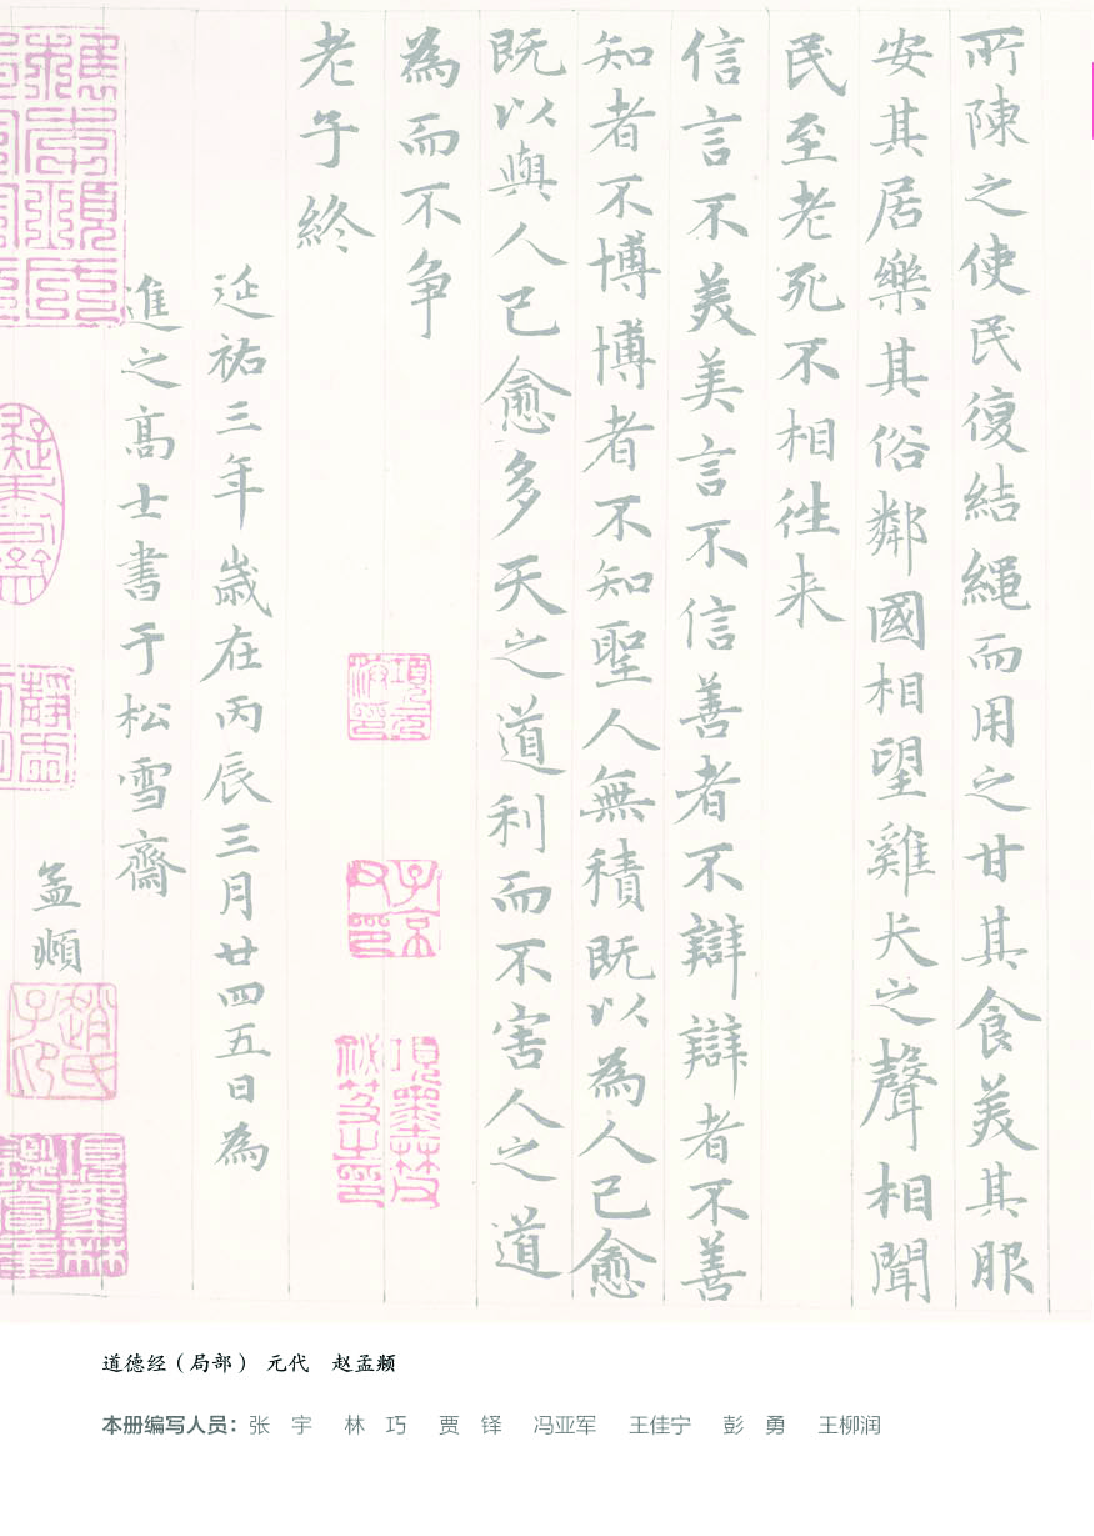 所陳之使民復結繩而用之甘其食美其服
安其居樂其俗鄰國相望雞犬之聲相聞
民至老死不相徃来
信言不美美言不信善者不辯辯者不善
知者不博博者不知聖人無積既以為人己愈
既以與人己愈多天之道利而不害人之道
為而不争
老子終
延祐三年歲在丙辰三月廿四五日為
進之高士書于松雪齋
孟頫
項元汴印
子京父印
項墨林父秘笈之印
趙氏子昂
道德经（局部） 元代 赵孟頫
本册编写人员：张宇 林巧 贾铎 冯亚军 王佳宁 彭勇 王柳润